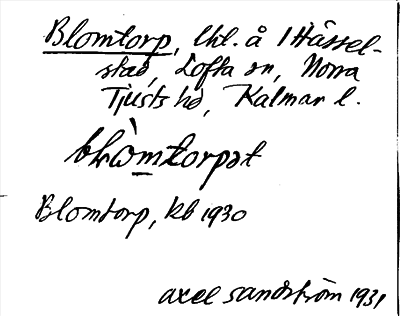 Blomtorp, lht. å 1 Hässel-
stad, Lofta sn, Norra
Tjusts hd, Kalmar l.
blωmtorpət
Blomtorp, kb 1930
axel sandström 1931